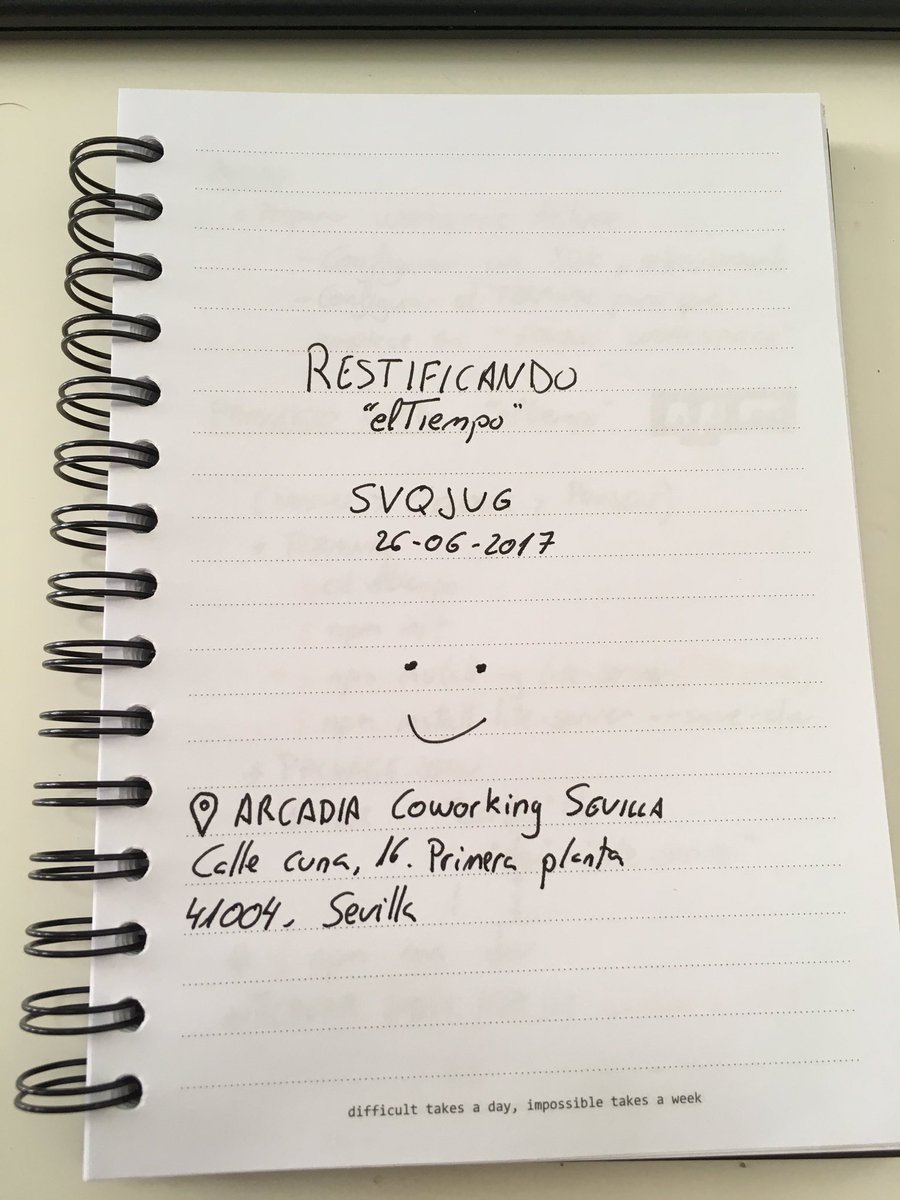 RESTIFICANDO
"elTiempo"
SVQJUG
26-06-2017
ARCADIA Coworking SEVILLA
Calle cuna, 16. Primera planta
41004. Sevilla
difficult takes a day, impossible takes a week